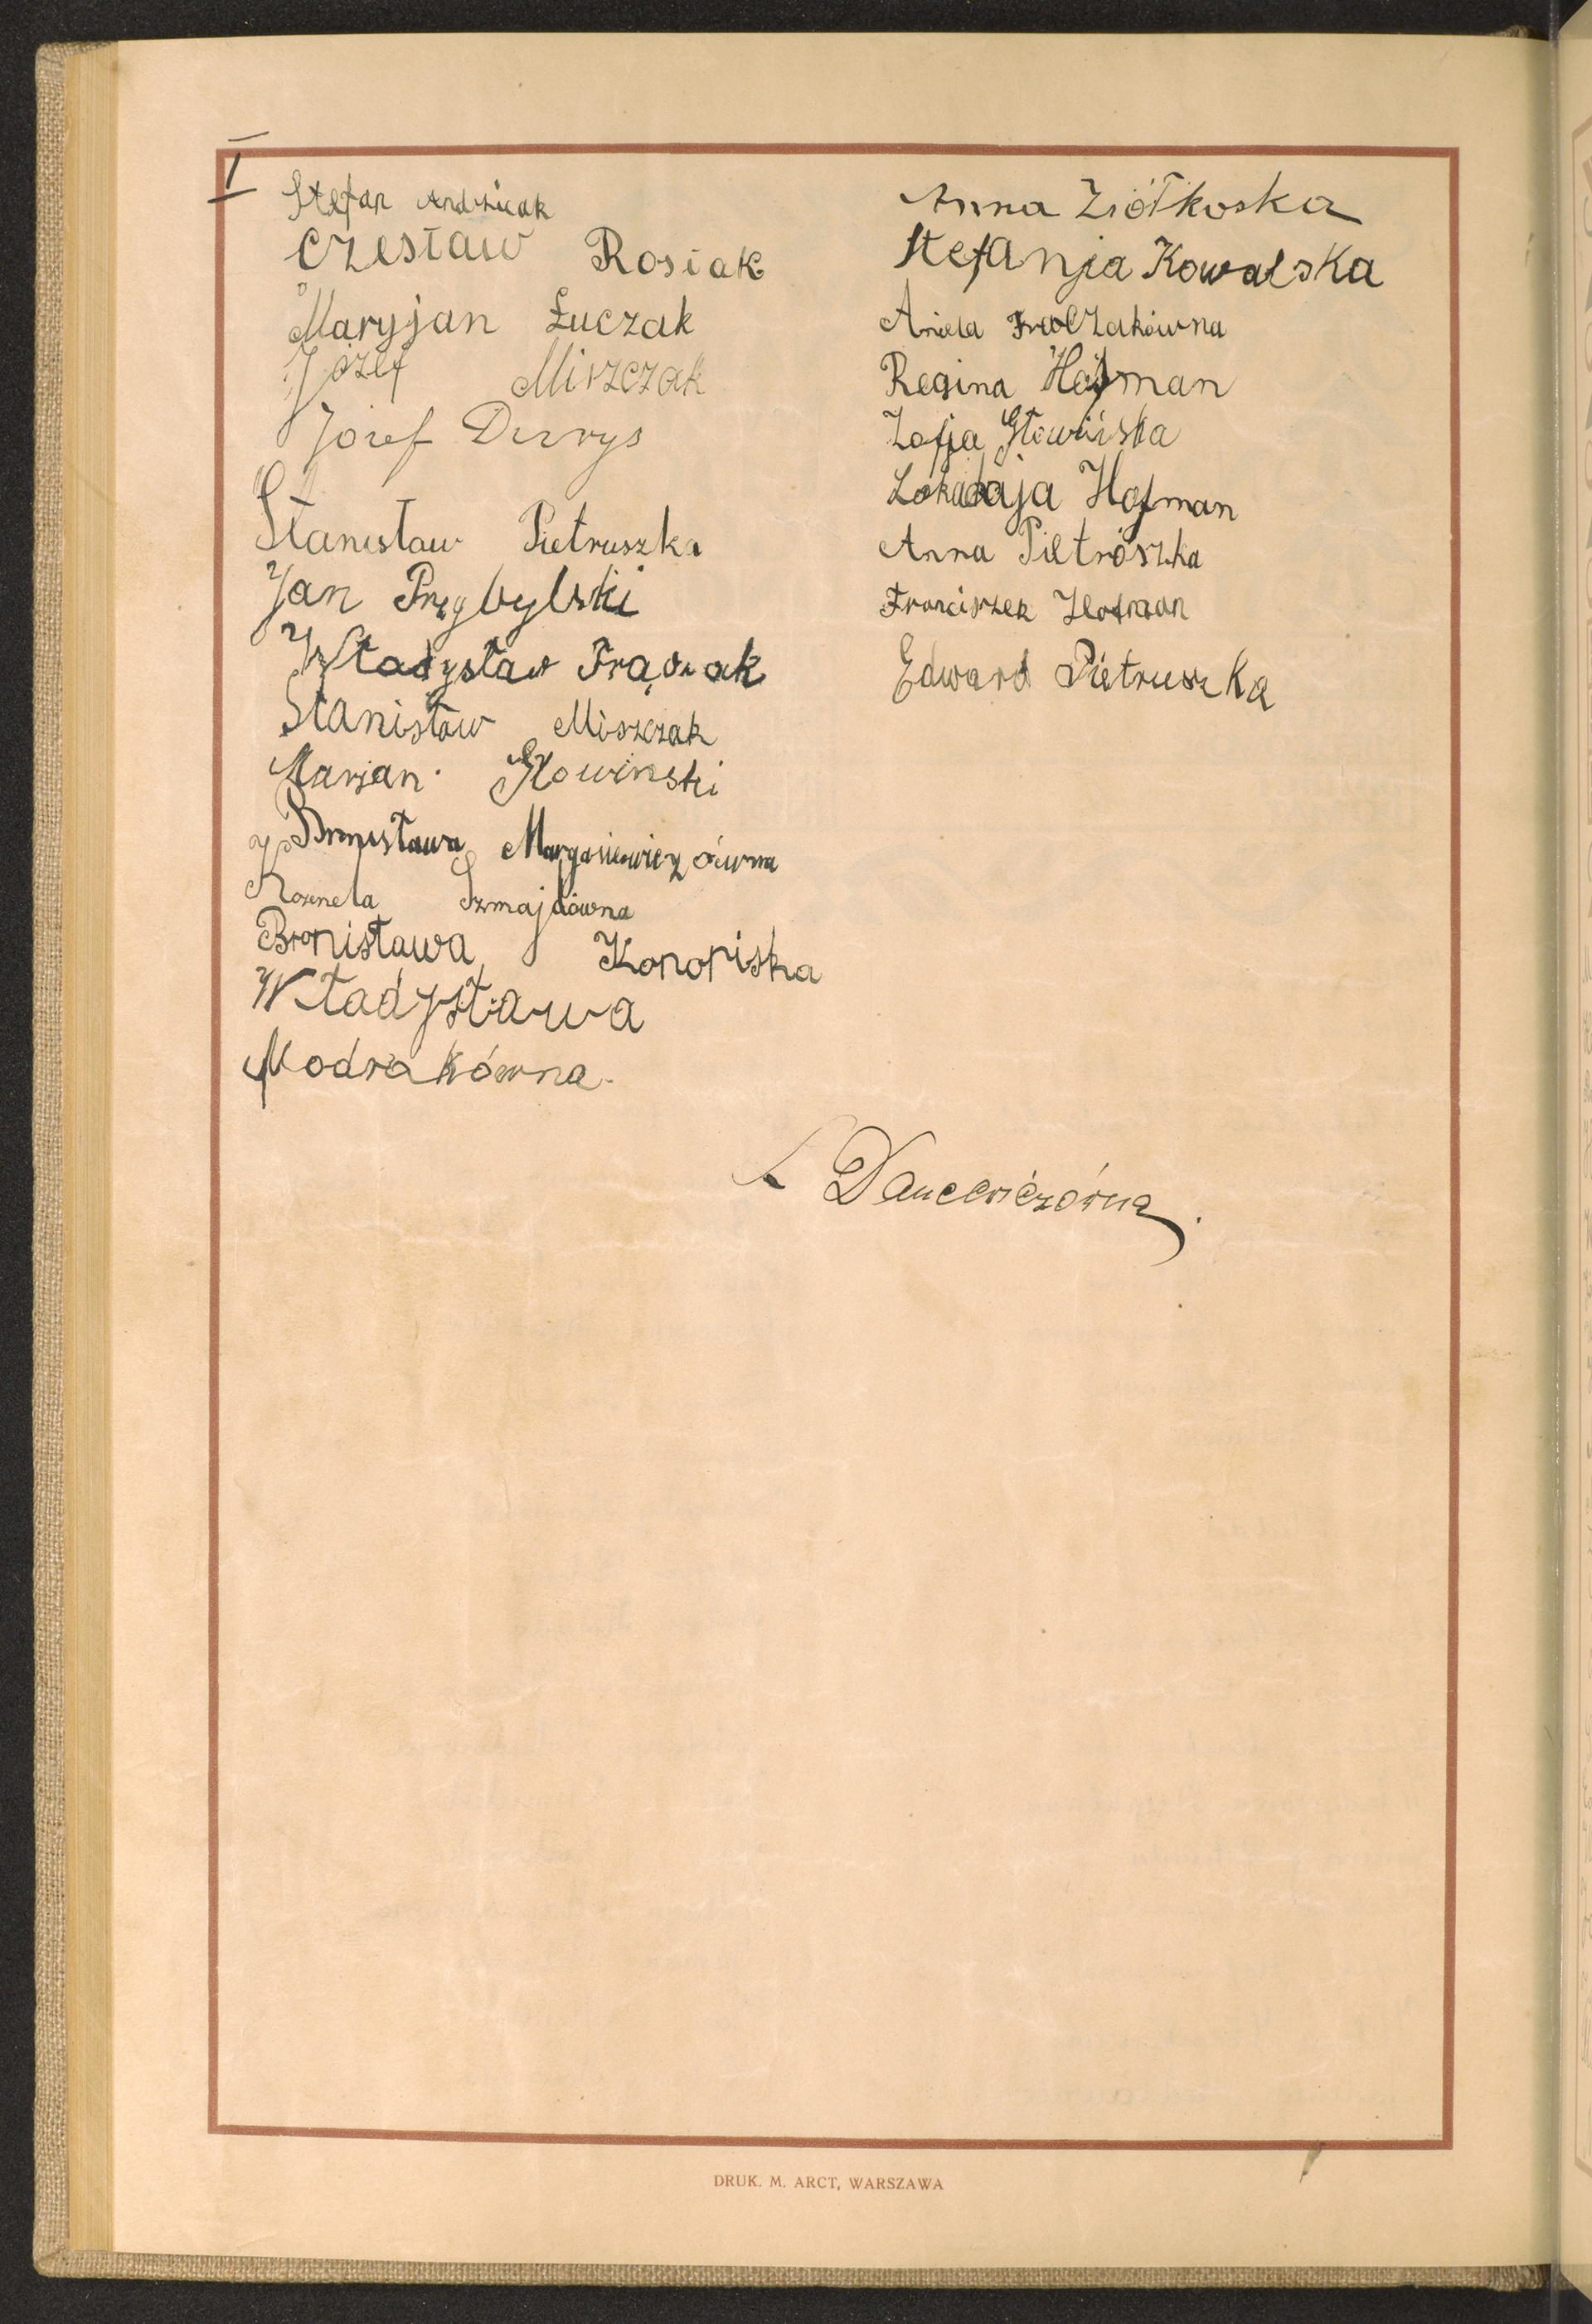 I
Stefan Andrziak
Czesław Rosiak
Maryjan Łuczak
Józef Miszczak
Józef Durys
Stanisław Pietruszka
Jan Przybylski
Władysław Frączak
Stanisław Miszczak
Marjan Głowinski
Bronisława
Szmajdówna
Bronisława Konopiska
Władysława
Modrakówna.
Anna Ziółkoska
Stefanja Kowalska
Aniela Frączakówna
Regina Hofman
Zofja Głowińska
Hofman
Anna Pietrószka
Franciszek Hofman
Edward Pietruszka
Dancewiczówna.
DRUK. M. ARCT, WARSZAWA